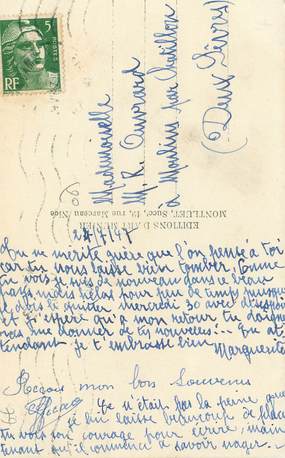 5
RF
Mademoiselle
M. R. Ouvrard
à Moulins par Chatillon
(Deux Sèvres)
EDITIONS D'ART MUNIER
MONTLUET, Succr, 19, rue Marceau, Nice
24/7/47
Tu ne mérite guère que l'on pense à toi
car tu nous laisse bien tomber. Comme
tu vois je suis de nouveau dans ce beau
pays mais hélas pour peu de temps puisque
je dois le quitter mercredi 30 avec désespoir
et j'espère qu'à mon retour tu daigne-
ras me donner de tes nouvelles. En at-
tendant je t'embrasse bien
Marguerite
Reçois mon bon souvenir
Ce n'était pas la peine que
je lui laisse beaucoup de place
tu vois son courage pour écrire, main-
tenant qu'il commence à savoir nager.